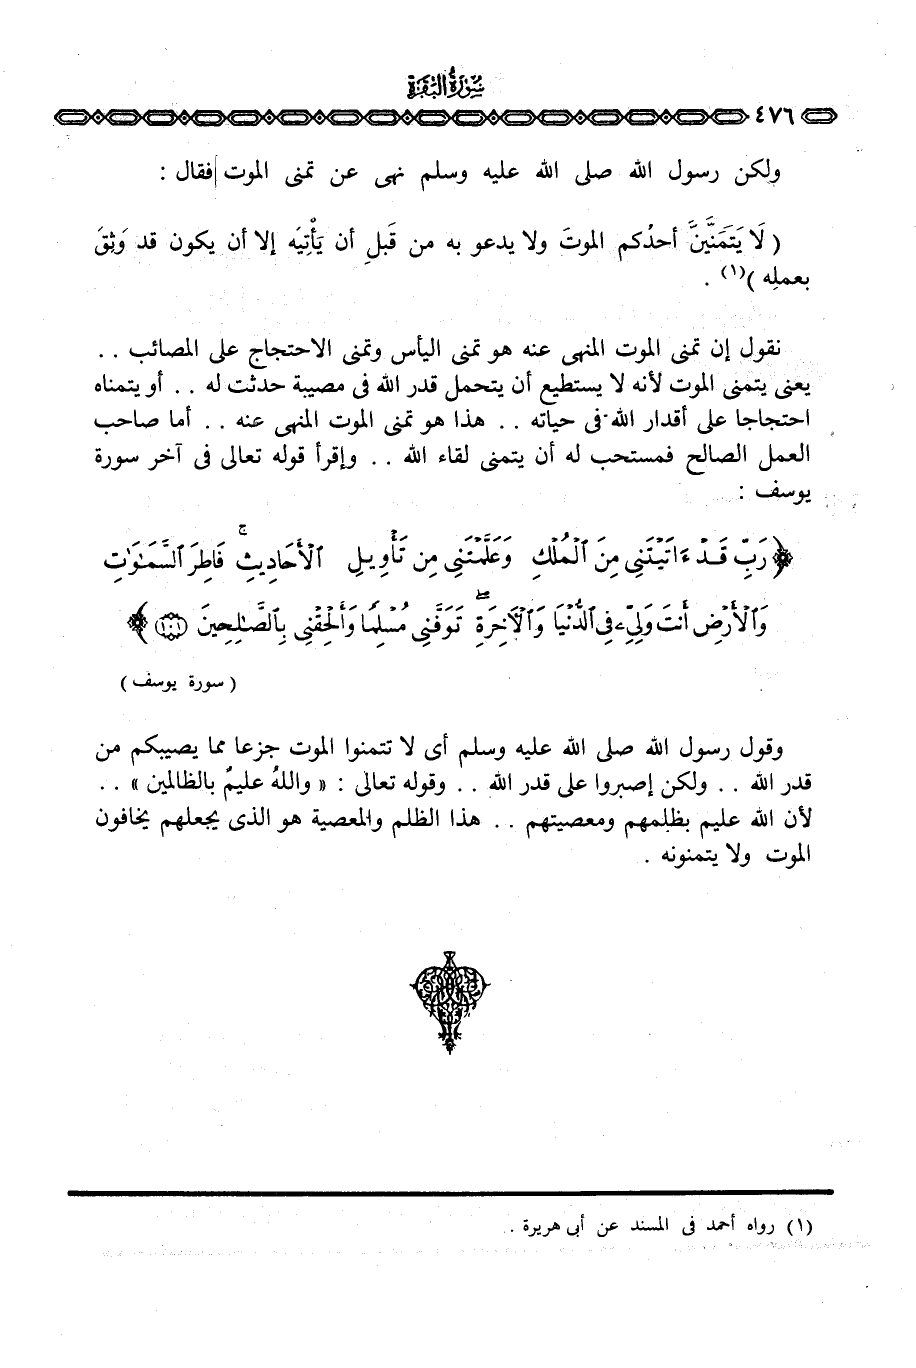 سورة البقرة
٤٧٦
ولكن رسول الله صلى الله عليه وسلم نهى عن تمنى الموت فقال :
( لَا يَتَمَنَّيَنَّ أحدُكم الموتَ ولا يدعو به من قَبلِ أن يَأْتِيَه إلا أن يكون قد وَثِقَ
بعملِه )(١) .
نقول إن تمنى الموت المنهى عنه هو تمنى اليأس وتمنى الاحتجاج على المصائب . .
يعنى يتمنى الموت لأنه لا يستطيع أن يتحمل قدر الله فى مصيبة حدثت له . . أو يتمناه
احتجاجا على أقدار الله فى حياته . . هذا هو تمنى الموت المنهى عنه . . أما صاحب
العمل الصالح فمستحب له أن يتمنى لقاء الله . . وإقرأ قوله تعالى فى آخر سورة
يوسف :
﴿ رَبِّ قَدْ ءَاتَيْتَنِى مِنَ ٱلْمُلْكِ وَعَلَّمْتَنِى مِن تَأْوِيلِ ٱلْأَحَادِيثِ ۚ فَاطِرَ ٱلسَّمَـٰوَٰتِ
وَٱلْأَرْضِ أَنتَ وَلِىِّۦ فِى ٱلدُّنْيَا وَٱلْأَخِرَةِ ۖ تَوَفَّنِى مُسْلِمًا وَأَلْحِقْنِى بِٱلصَّـٰلِحِينَ ١٠١ ﴾
( سورة يوسف )
وقول رسول الله صلى الله عليه وسلم أى لا تتمنوا الموت جزعا مما يصيبكم من
قدر الله . . ولكن إصبروا على قدر الله . . وقوله تعالى : « واللهُ عليمٌ بالظالمين » . .
لأن الله عليم بظلمهم ومعصيتهم . . هذا الظلم والمعصية هو الذى يجعلهم يخافون
الموت ولا يتمنونه .
(١) رواه أحمد فى المسند عن أبى هريرة .